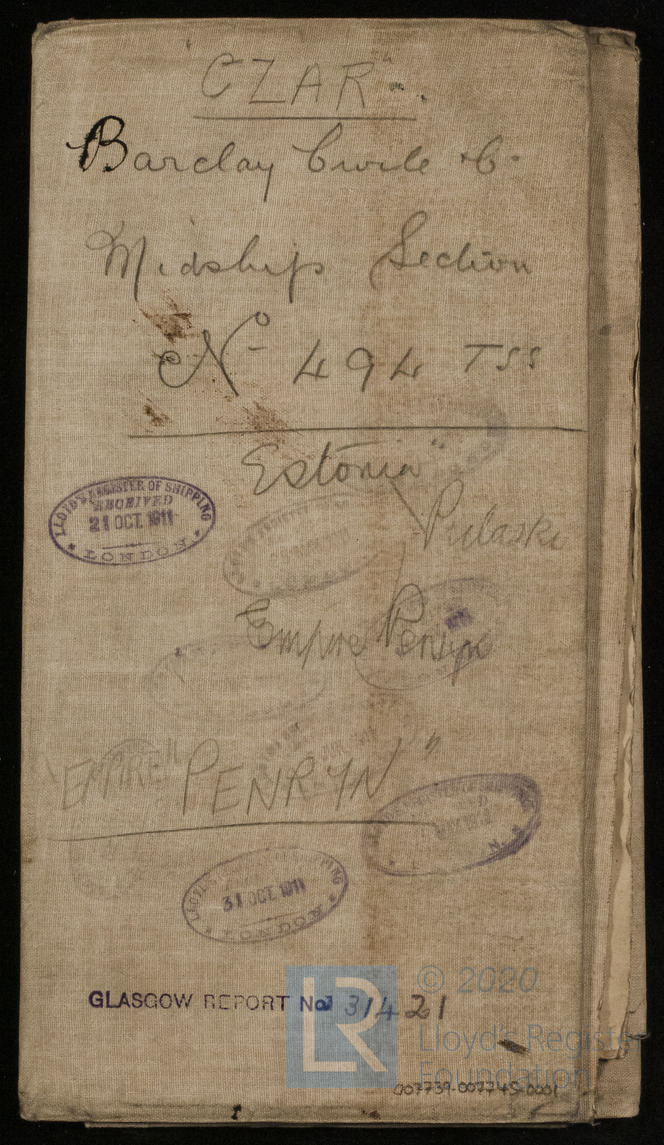 "CZAR".
Barclay Curle & Co.
Midship Section
No 494 TSS
Estonia"
Pulaski
LLOYD'S REGISTER OF SHIPPING
RECEIVED
21 OCT. 1911
LONDON
Empire Penryn
"EMPIRE" PENRYN"
LLOYD'S REGISTER OF SHIPPING
31 OCT. 1911
LONDON
GLASGOW REPORT No 31421
LR
© 2020
Lloyd's Register
Foundation
007739-007745-0001